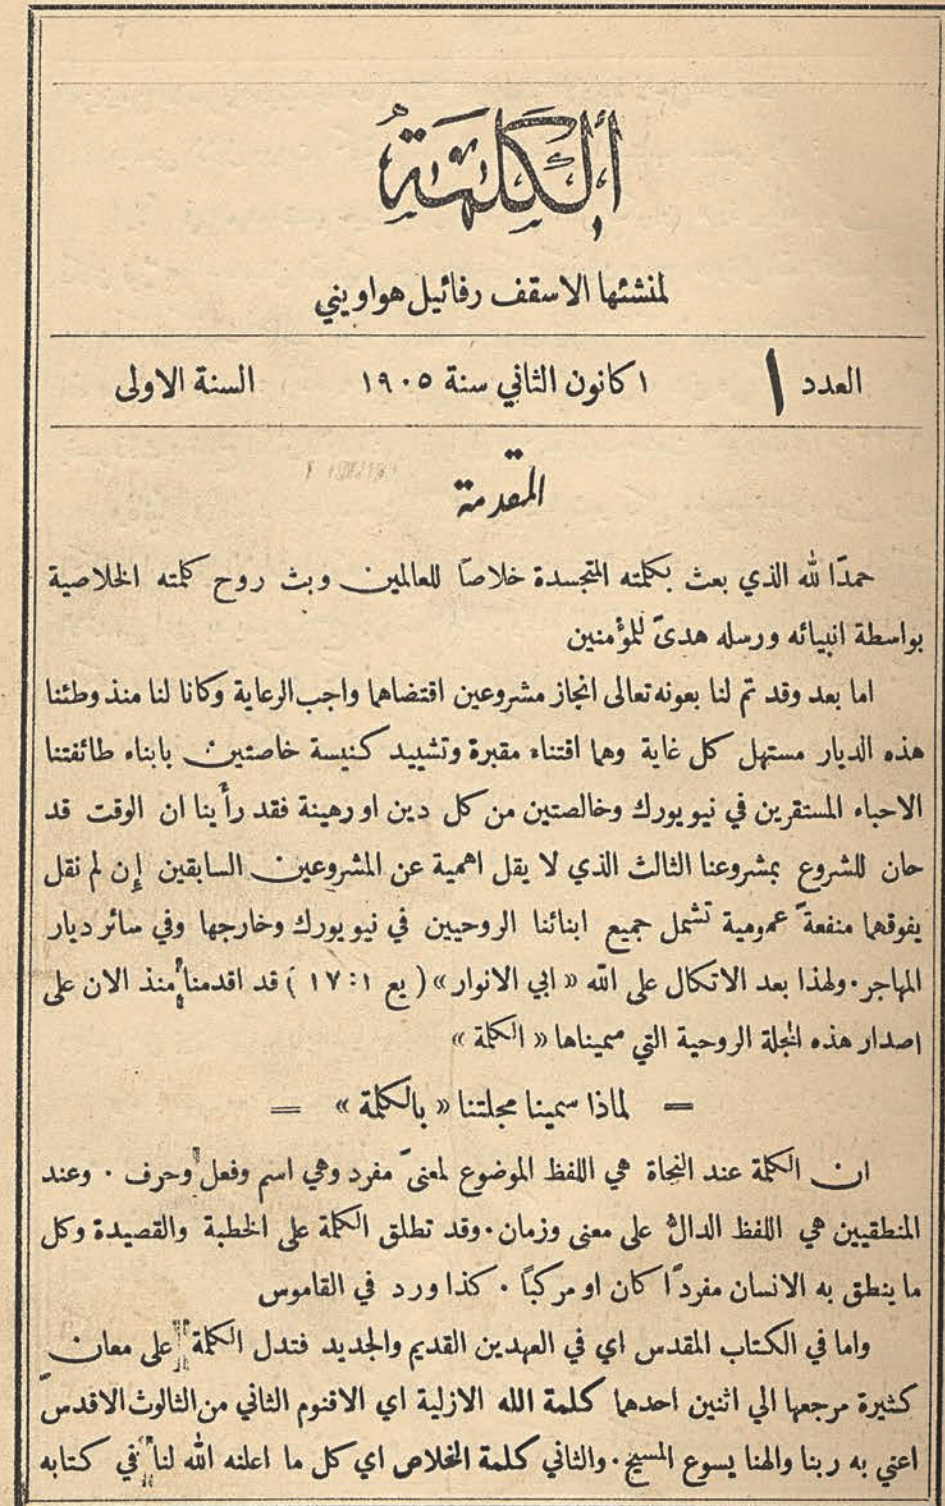 ألكلمة
لمنشئها الاسقف رفائيل هواويني
العدد ١ ١ كانون الثاني سنة ١٩٠٥ السنة الاولى
المقدمة
حمدًا لله الذي بعث بكلمته المتجسدة خلاصًا للعالمين وبث روح كلمته الخلاصية
بواسطة انبيائه ورسله هدىً للمؤمنين
اما بعد وقد تم لنا بعونه تعالى انجاز مشروعين اقتضاهما واجب الرعاية وكانا لنا منذ وطئنا
هذه الديار مستهل كل غاية وهما اقتناء مقبرة وتشييد كنيسة خاصتين بابناء طائفتنا
الاحباء المستقرين في نيويورك وخالصتين من كل دين او رهينة فقد رأينا ان الوقت قد
حان للشروع بمشروعنا الثالث الذي لا يقل اهمية عن المشروعين السابقين إن لم نقل
يفوقهما منفعةً عمومية تشمل جميع ابنائنا الروحيين في نيويورك وخارجها وفي سائر ديار
المهاجر. ولهذا بعد الاتكال على الله « ابي الانوار » ( يع ١ : ١٧ ) قد اقدمنا منذ الان على
اصدار هذه المجلة الروحية التي سميناها « الكلمة »
= لماذا سمينا مجلتنا « بالكلمة » =
ان الكلمة عند النحاة هي اللفظ الموضوع لمعنىً مفرد وهي اسم وفعل وحرف . وعند
المنطقيين هي اللفظ الدالُّ على معنى وزمان. وقد تطلق الكلمة على الخطبة والقصيدة وكل
ما ينطق به الانسان مفردًا كان او مركبًا . كذا ورد في القاموس
واما في الكتاب المقدس اي في العهدين القديم والجديد فتدل الكلمة على معانٍ
كثيرة مرجعها الي اثنين احدهما كلمة الله الازلية اي الاقنوم الثاني من الثالوث الاقدس
اعني به ربنا والهنا يسوع المسيح. والثاني كلمة الخلاص اي كل ما اعلنه الله لنا في كتابه